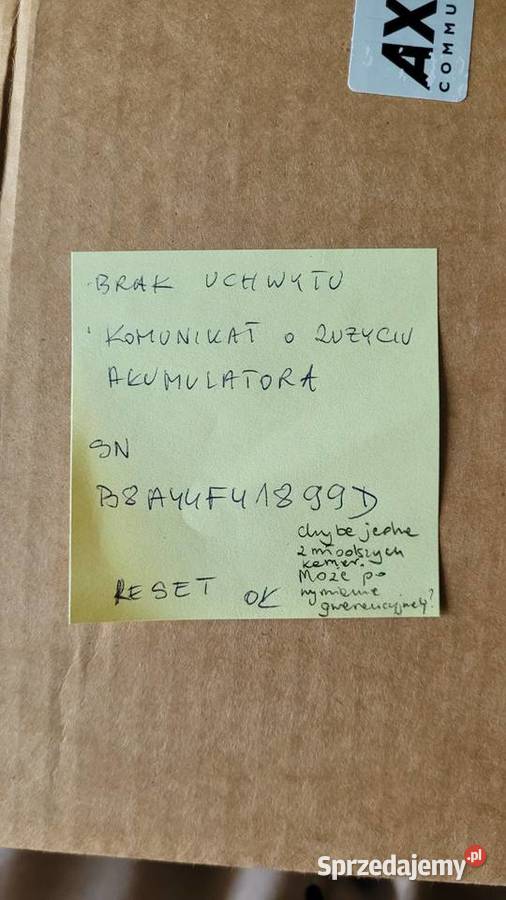 AX
COMMU
BRAK UCHWYTU
KOMUNIKAT O ZUŻYCIU
AKUMULATORA
SN
B8A44F41899D
chyba jedna
z młodszych
kamer.
Może po
wymianie
gwarancyjnej?
RESET OK
Sprzedajemy.pl